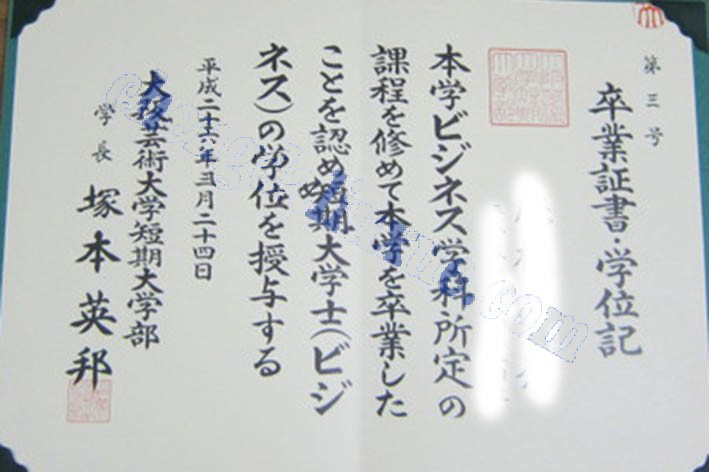 第三号
卒業証書・学位記
本学ビジネス学科所定の
課程を修めて本学を卒業した
ことを認め短期大学士(ビジ
ネス)の学位を授与する
平成二十六年三月二十四日
大阪芸術大学短期大学部
学長 塚本英邦